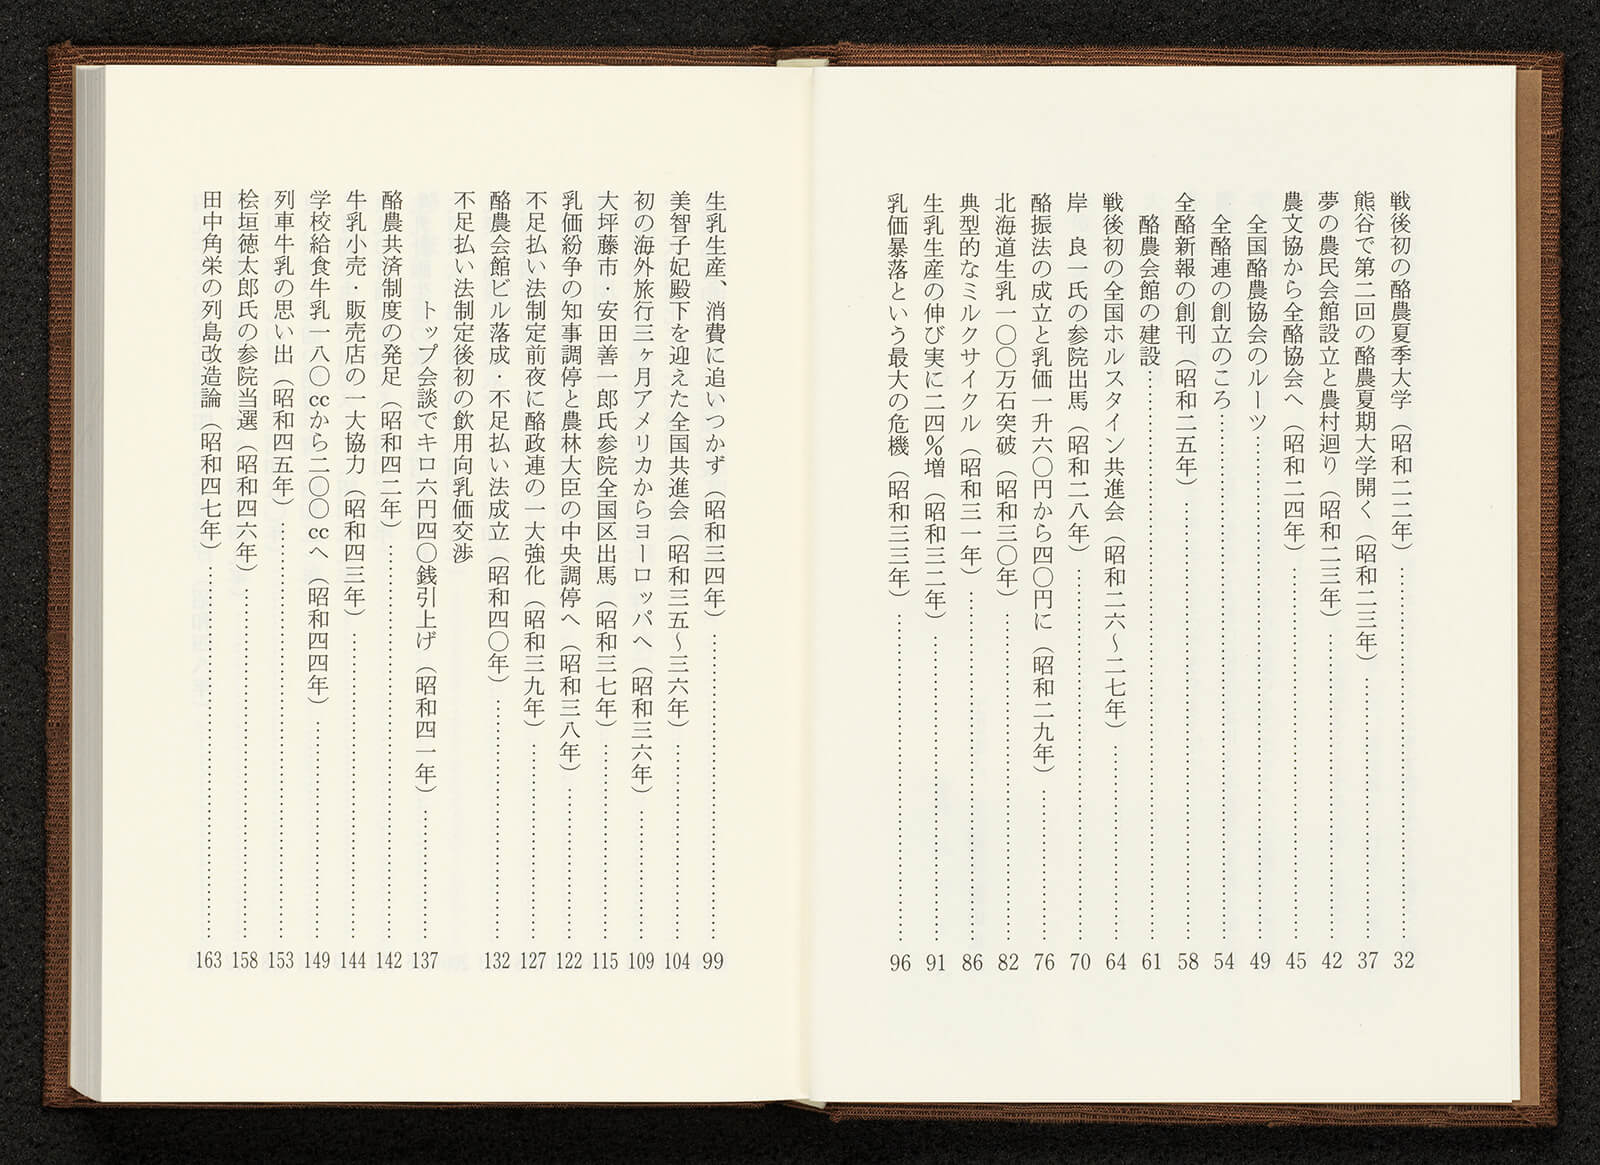 戦後初の酪農夏季大学（昭和二二年）……………………32
熊谷で第二回の酪農夏期大学開く（昭和二三年）……………………37
夢の農民会館設立と農村廻り（昭和二三年）……………………42
農文協から全酪協会へ（昭和二四年）……………………45
全国酪農協会のルーツ……………………49
全酪連の創立のころ……………………54
全酪新報の創刊（昭和二五年）……………………58
酪農会館の建設……………………61
戦後初の全国ホルスタイン共進会（昭和二六～二七年）……………………64
岸　良一氏の参院出馬（昭和二八年）……………………70
酪振法の成立と乳価一升六〇円から四〇円に（昭和二九年）……………………76
北海道生乳一〇〇万石突破（昭和三〇年）……………………82
典型的なミルクサイクル（昭和三一年）……………………86
生乳生産の伸び実に二四％増（昭和三二年）……………………91
乳価暴落という最大の危機（昭和三三年）……………………96
生乳生産、消費に追いつかず（昭和三四年）……………………99
美智子妃殿下を迎えた全国共進会（昭和三五～三六年）……………………104
初の海外旅行三ヶ月アメリカからヨーロッパへ（昭和三六年）……………………109
大坪藤市・安田善一郎氏参院全国区出馬（昭和三七年）……………………115
乳価紛争の知事調停と農林大臣の中央調停へ（昭和三八年）……………………122
不足払い法制定前夜に酪政連の一大強化（昭和三九年）……………………127
酪農会館ビル落成・不足払い法成立（昭和四〇年）……………………132
不足払い法制定後初の飲用向乳価交渉
トップ会談でキロ六円四〇銭引上げ（昭和四一年）……………………137
酪農共済制度の発足（昭和四二年）……………………142
牛乳小売・販売店の一大協力（昭和四三年）……………………144
学校給食牛乳一八〇ccから二〇〇ccへ（昭和四四年）……………………149
列車牛乳の思い出（昭和四五年）……………………153
桧垣徳太郎氏の参院当選（昭和四六年）……………………158
田中角栄の列島改造論（昭和四七年）……………………163